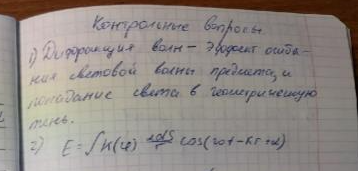 Контрольные вопросы.
1) Дифракция волн – эффект огиба-
ния световой волны предмета, и
попадание света в геометрическую
тень.
2) E = ∫ K(φ) a₀dS/r cos(ωt - kr + α)